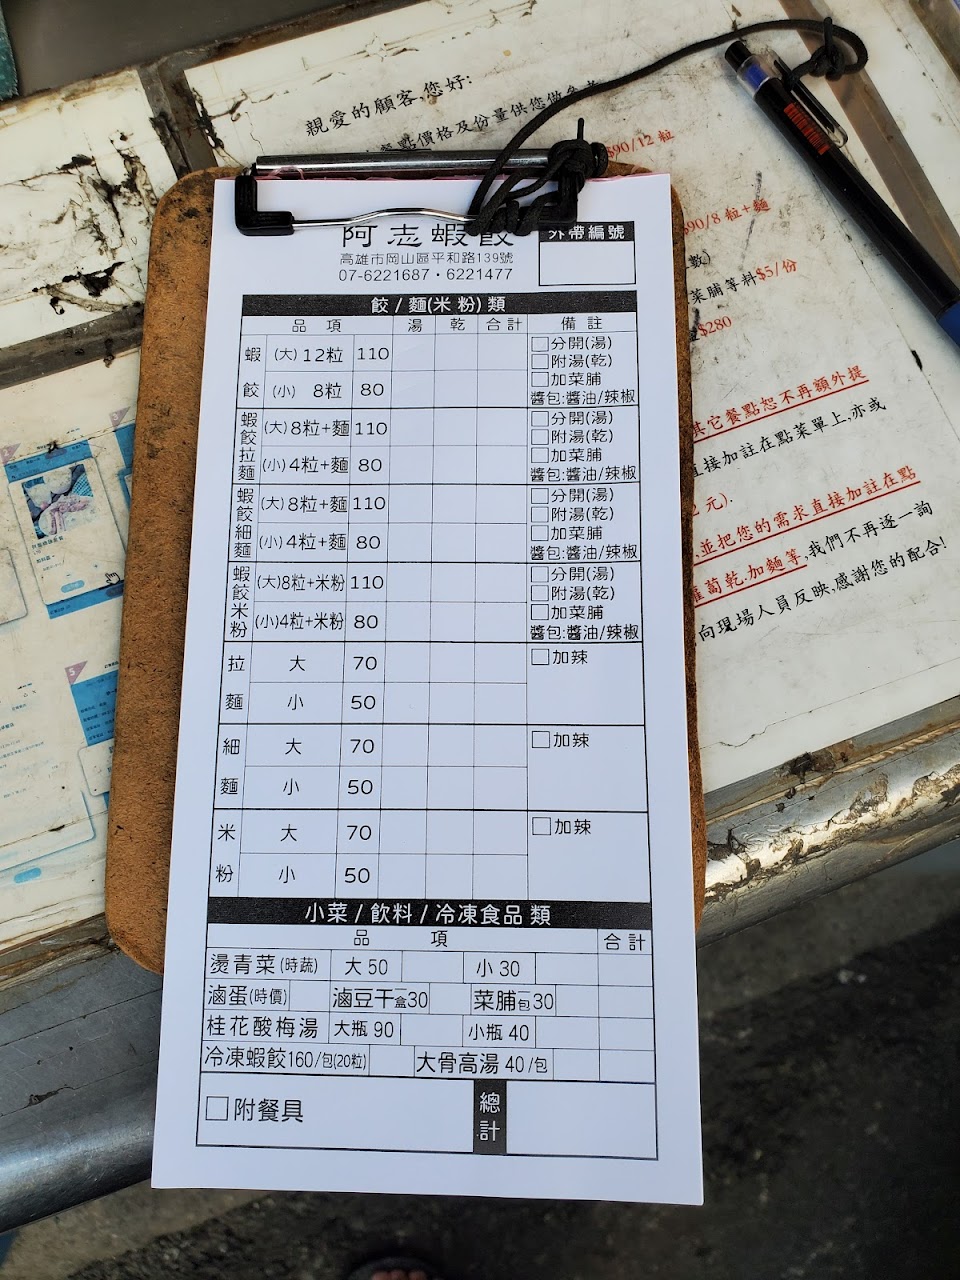 親愛的顧客,您好:
餐點價格及份量供您做參考
$90/12 粒
$90/8 粒+麵
數)
菜脯等料$5/份
$280
其它餐點恕不再額外提
直接加註在點菜單上,亦或
元).
,並把您的需求直接加註在點
蘿蔔乾.加麵等,我們不再逐一詢
向現場人員反映,感謝您的配合!
阿志蝦餃
外帶編號
高雄市岡山區平和路139號
07-6221687・6221477
餃 / 麵(米粉)類
品項 湯 乾 合計 備註
蝦餃 (大) 12粒 110 □分開(湯)
□附湯(乾)
(小) 8粒 80 □加菜脯
醬包:醬油/辣椒
蝦餃拉麵 (大) 8粒+麵 110 □分開(湯)
□附湯(乾)
(小) 4粒+麵 80 □加菜脯
醬包:醬油/辣椒
蝦餃細麵 (大) 8粒+麵 110 □分開(湯)
□附湯(乾)
(小) 4粒+麵 80 □加菜脯
醬包:醬油/辣椒
蝦餃米粉 (大)8粒+米粉 110 □分開(湯)
□附湯(乾)
(小)4粒+米粉 80 □加菜脯
醬包:醬油/辣椒
拉麵 大 70 □加辣
小 50
細麵 大 70 □加辣
小 50
米粉 大 70 □加辣
小 50
小菜 / 飲料 / 冷凍食品 類
品項 合計
燙青菜(時蔬) 大 50 小 30
滷蛋(時價) 滷豆干一盒30 菜脯一包30
桂花酸梅湯 大瓶 90 小瓶 40
冷凍蝦餃160/包(20粒) 大骨高湯 40/包
□附餐具 總計